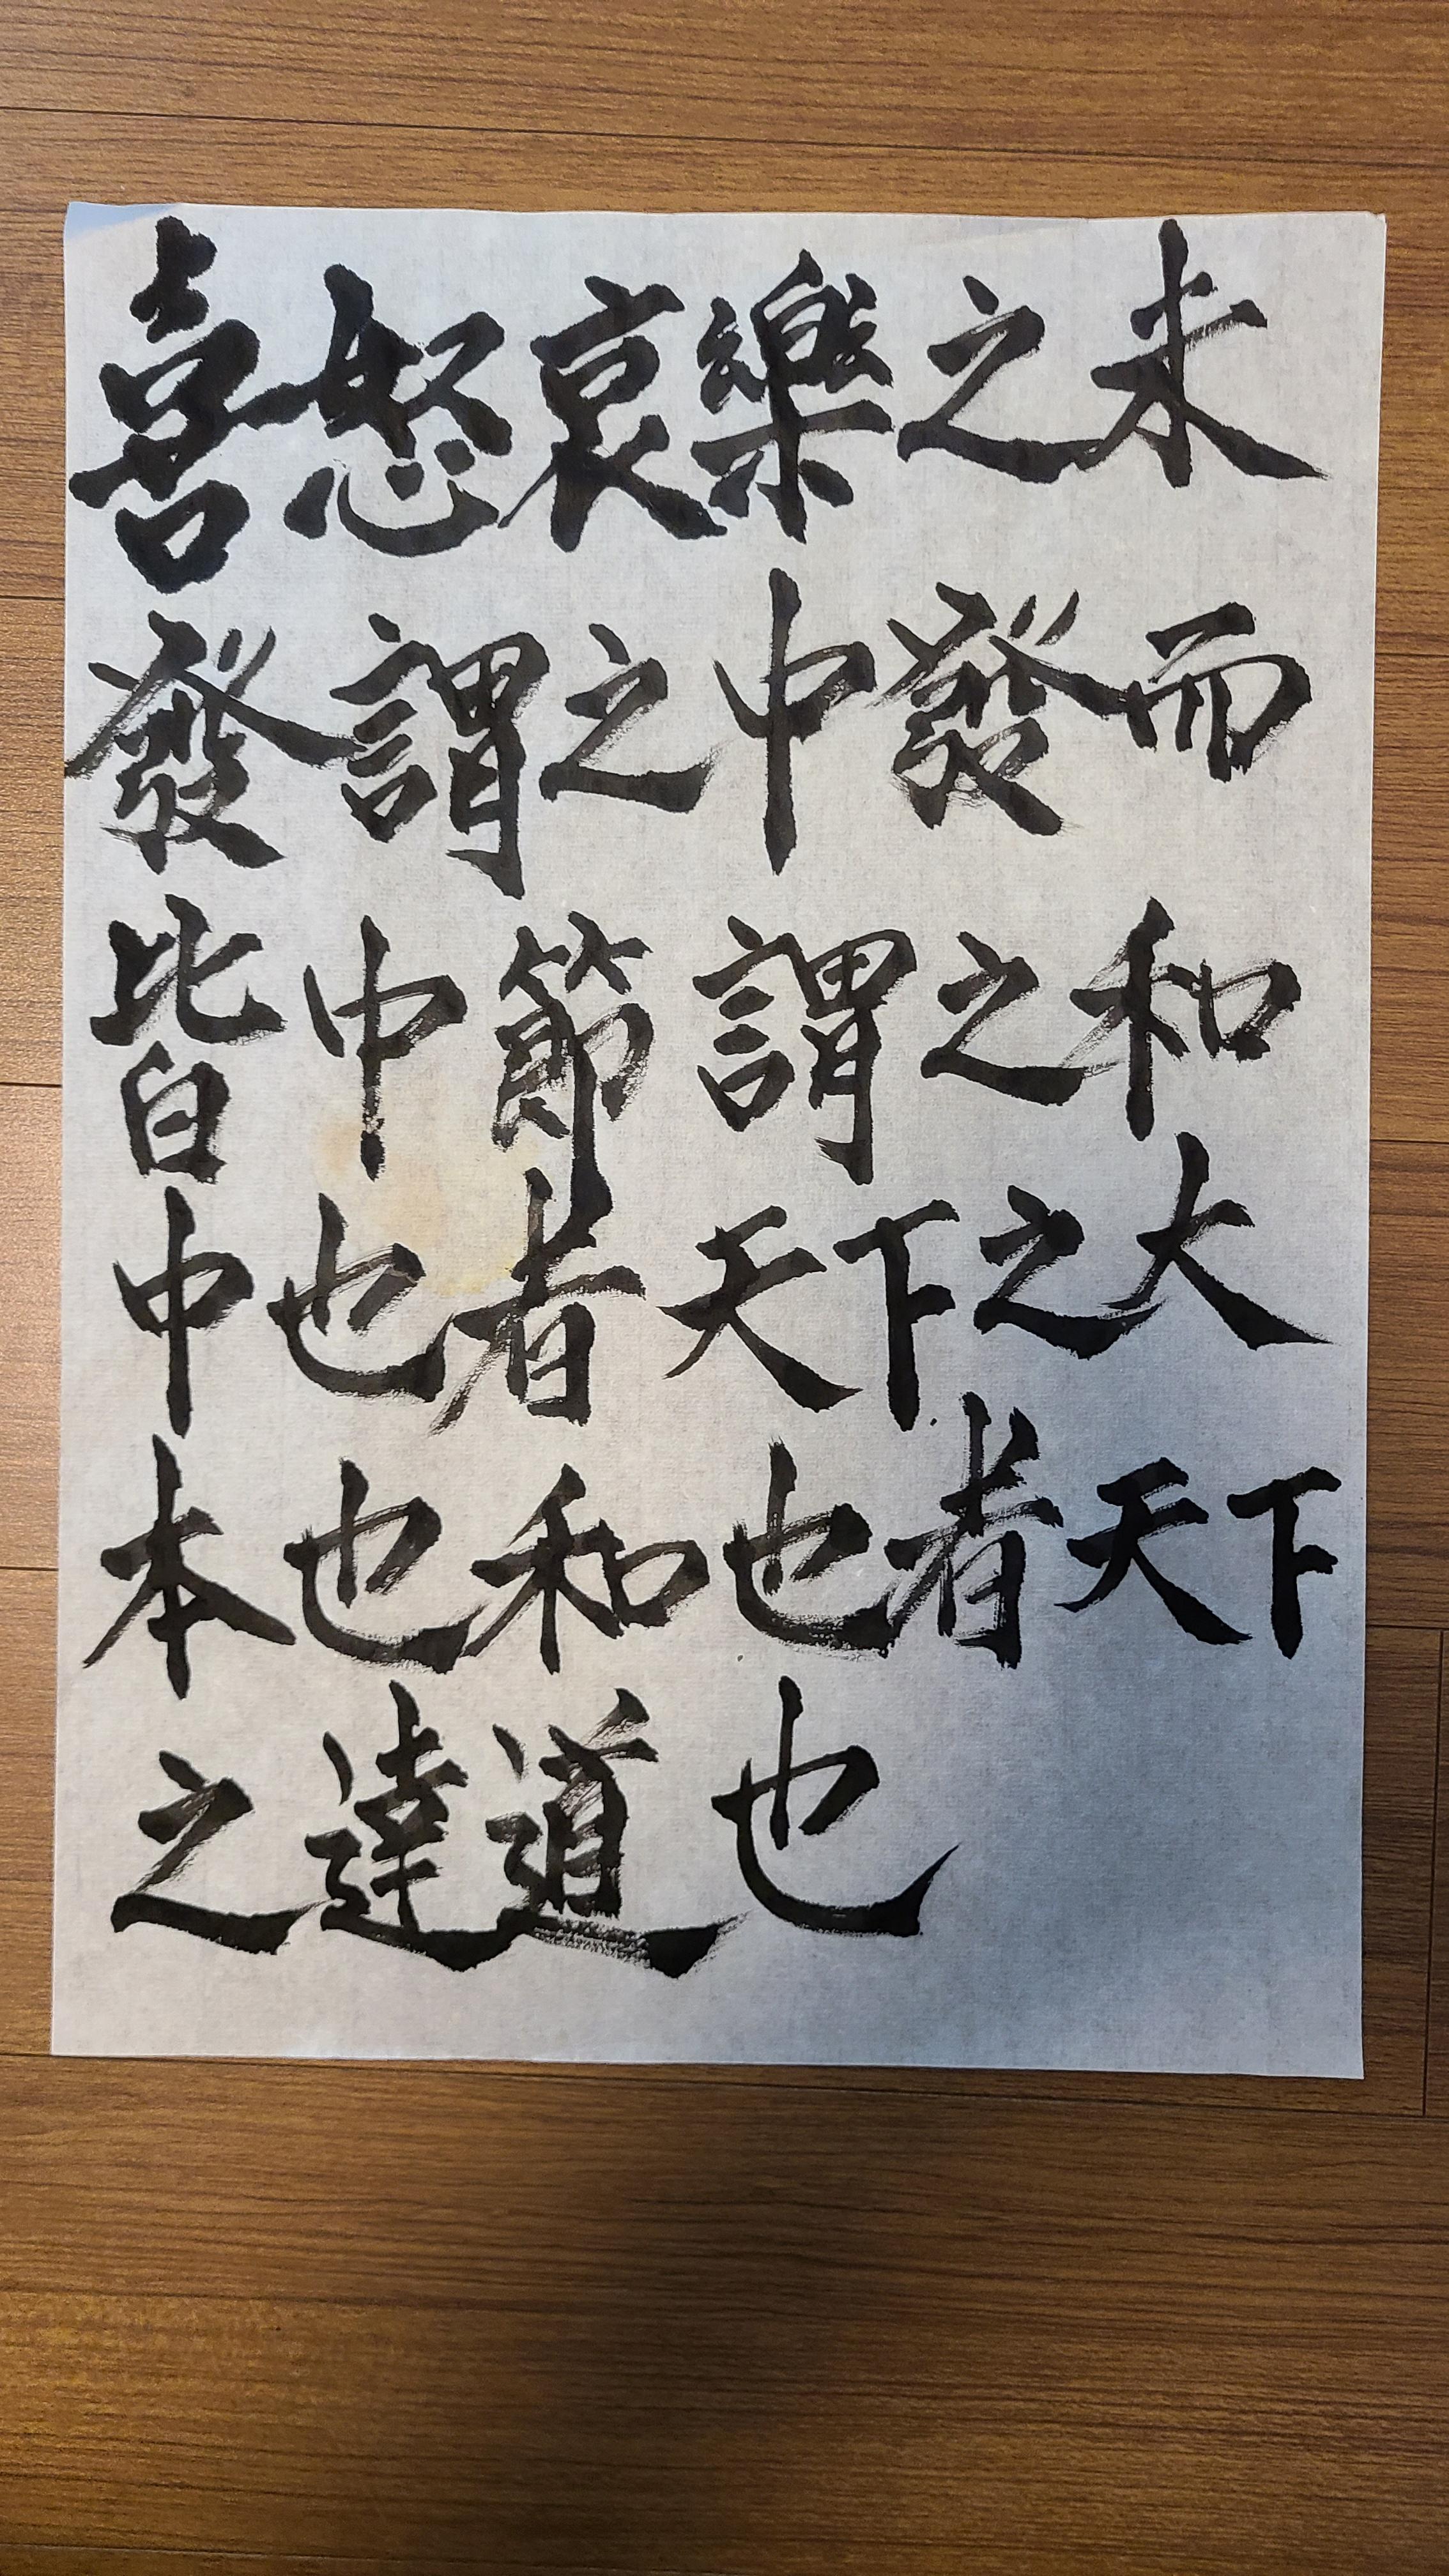 喜怒哀樂之未
發謂之中發而
皆中節謂之和
中也者天下之大
本也和也者天下
之達道也